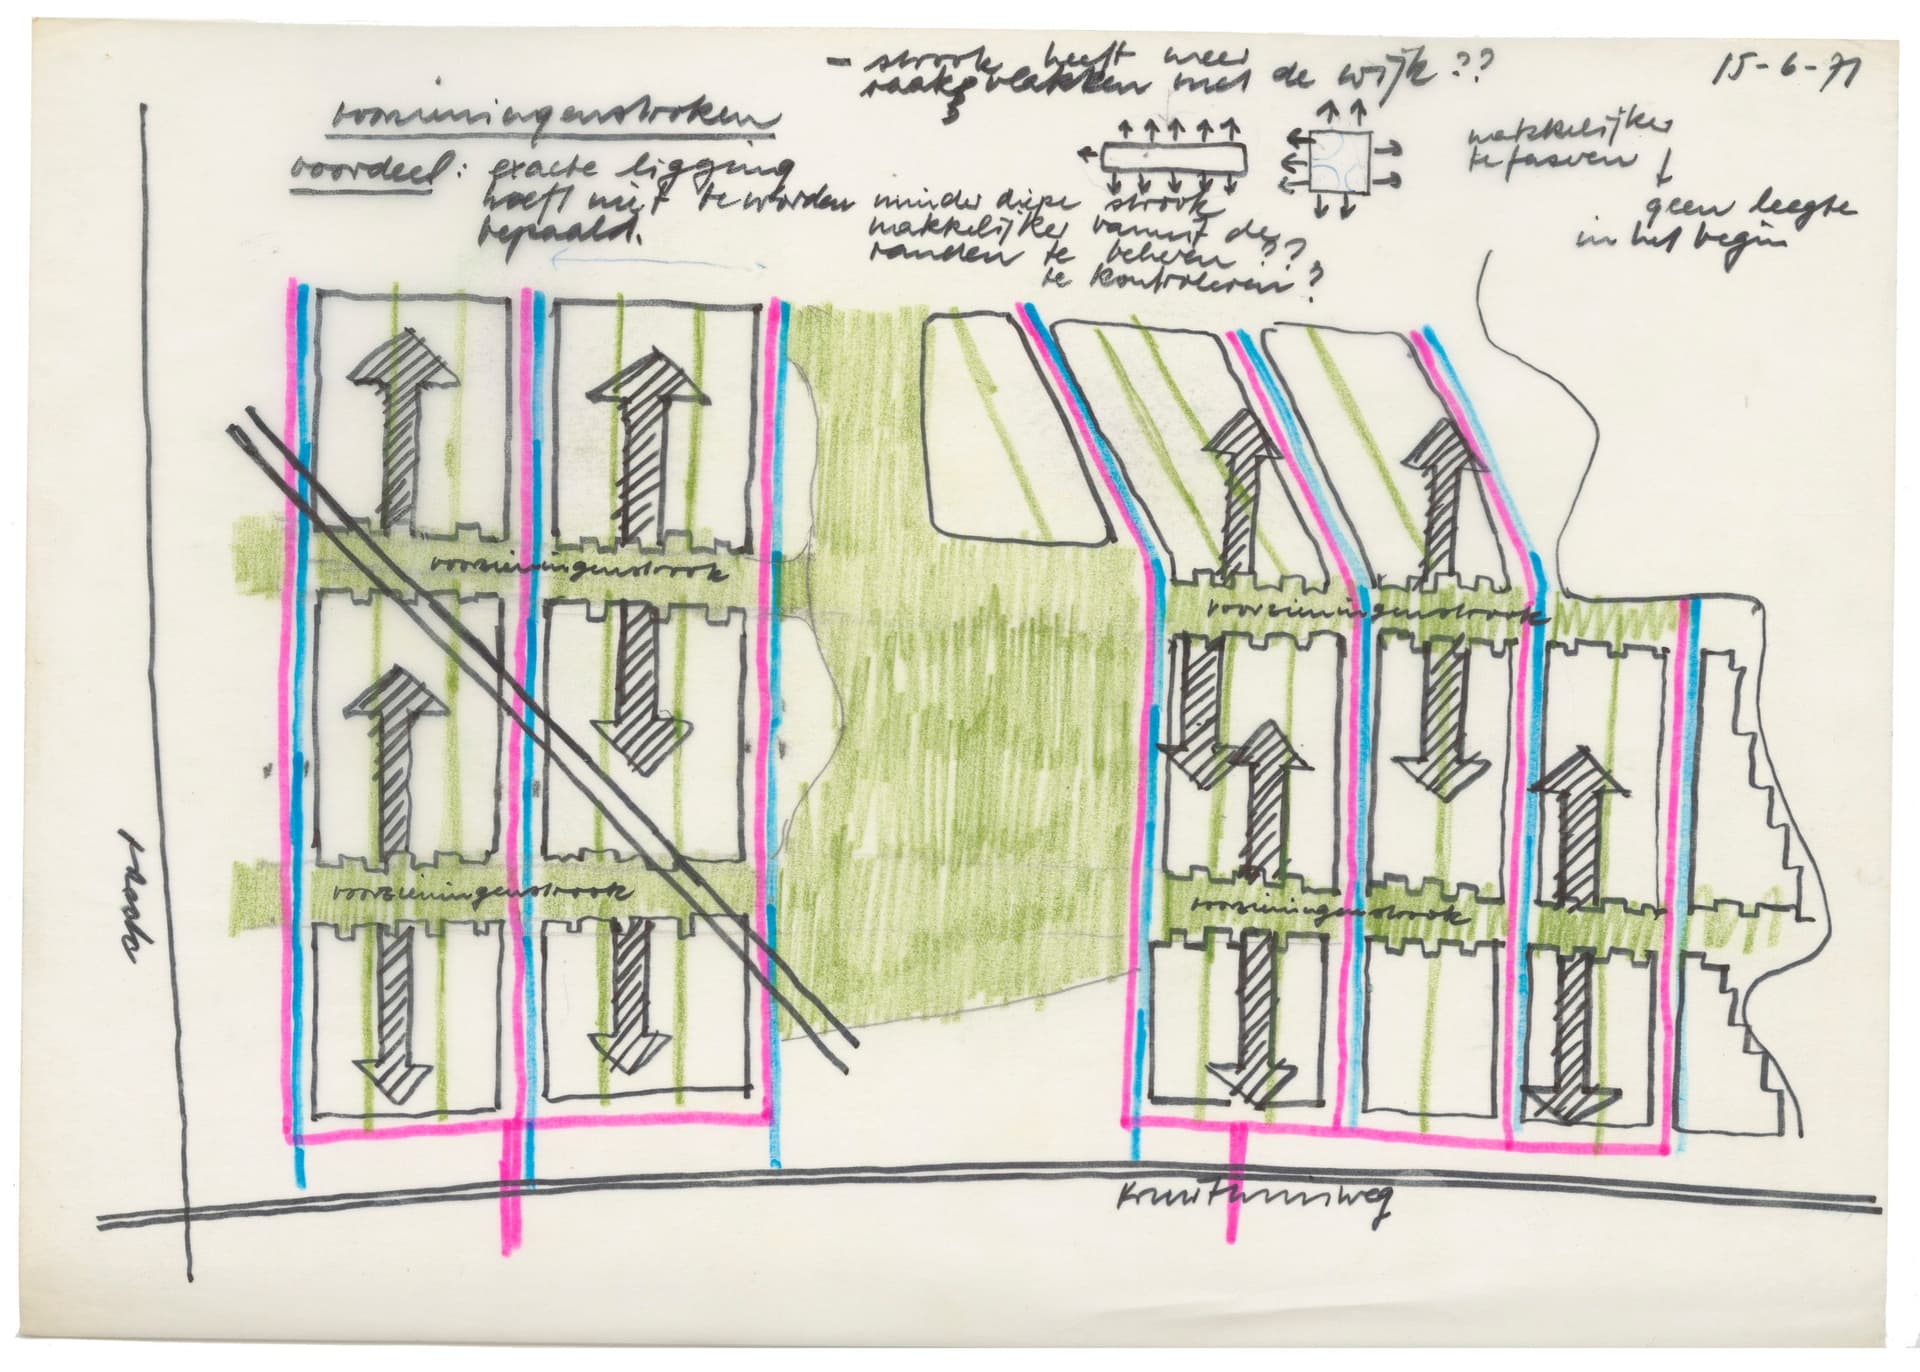 - strook heeft meer
raakvlakken met de wijk ??
15-6-71
voorzieningenstroken
voordeel: exacte ligging
hoeft niet te worden
bepaald.
minder diepe strook
makkelijker vanuit de
randen te beheren ??
te kontroleren ?
makkelijker
te faseren
↓
geen leegte
in het begin
voorzieningenstrook
voorzieningenstrook
voorzieningenstrook
voorzieningenstrook
Kruithuisweg